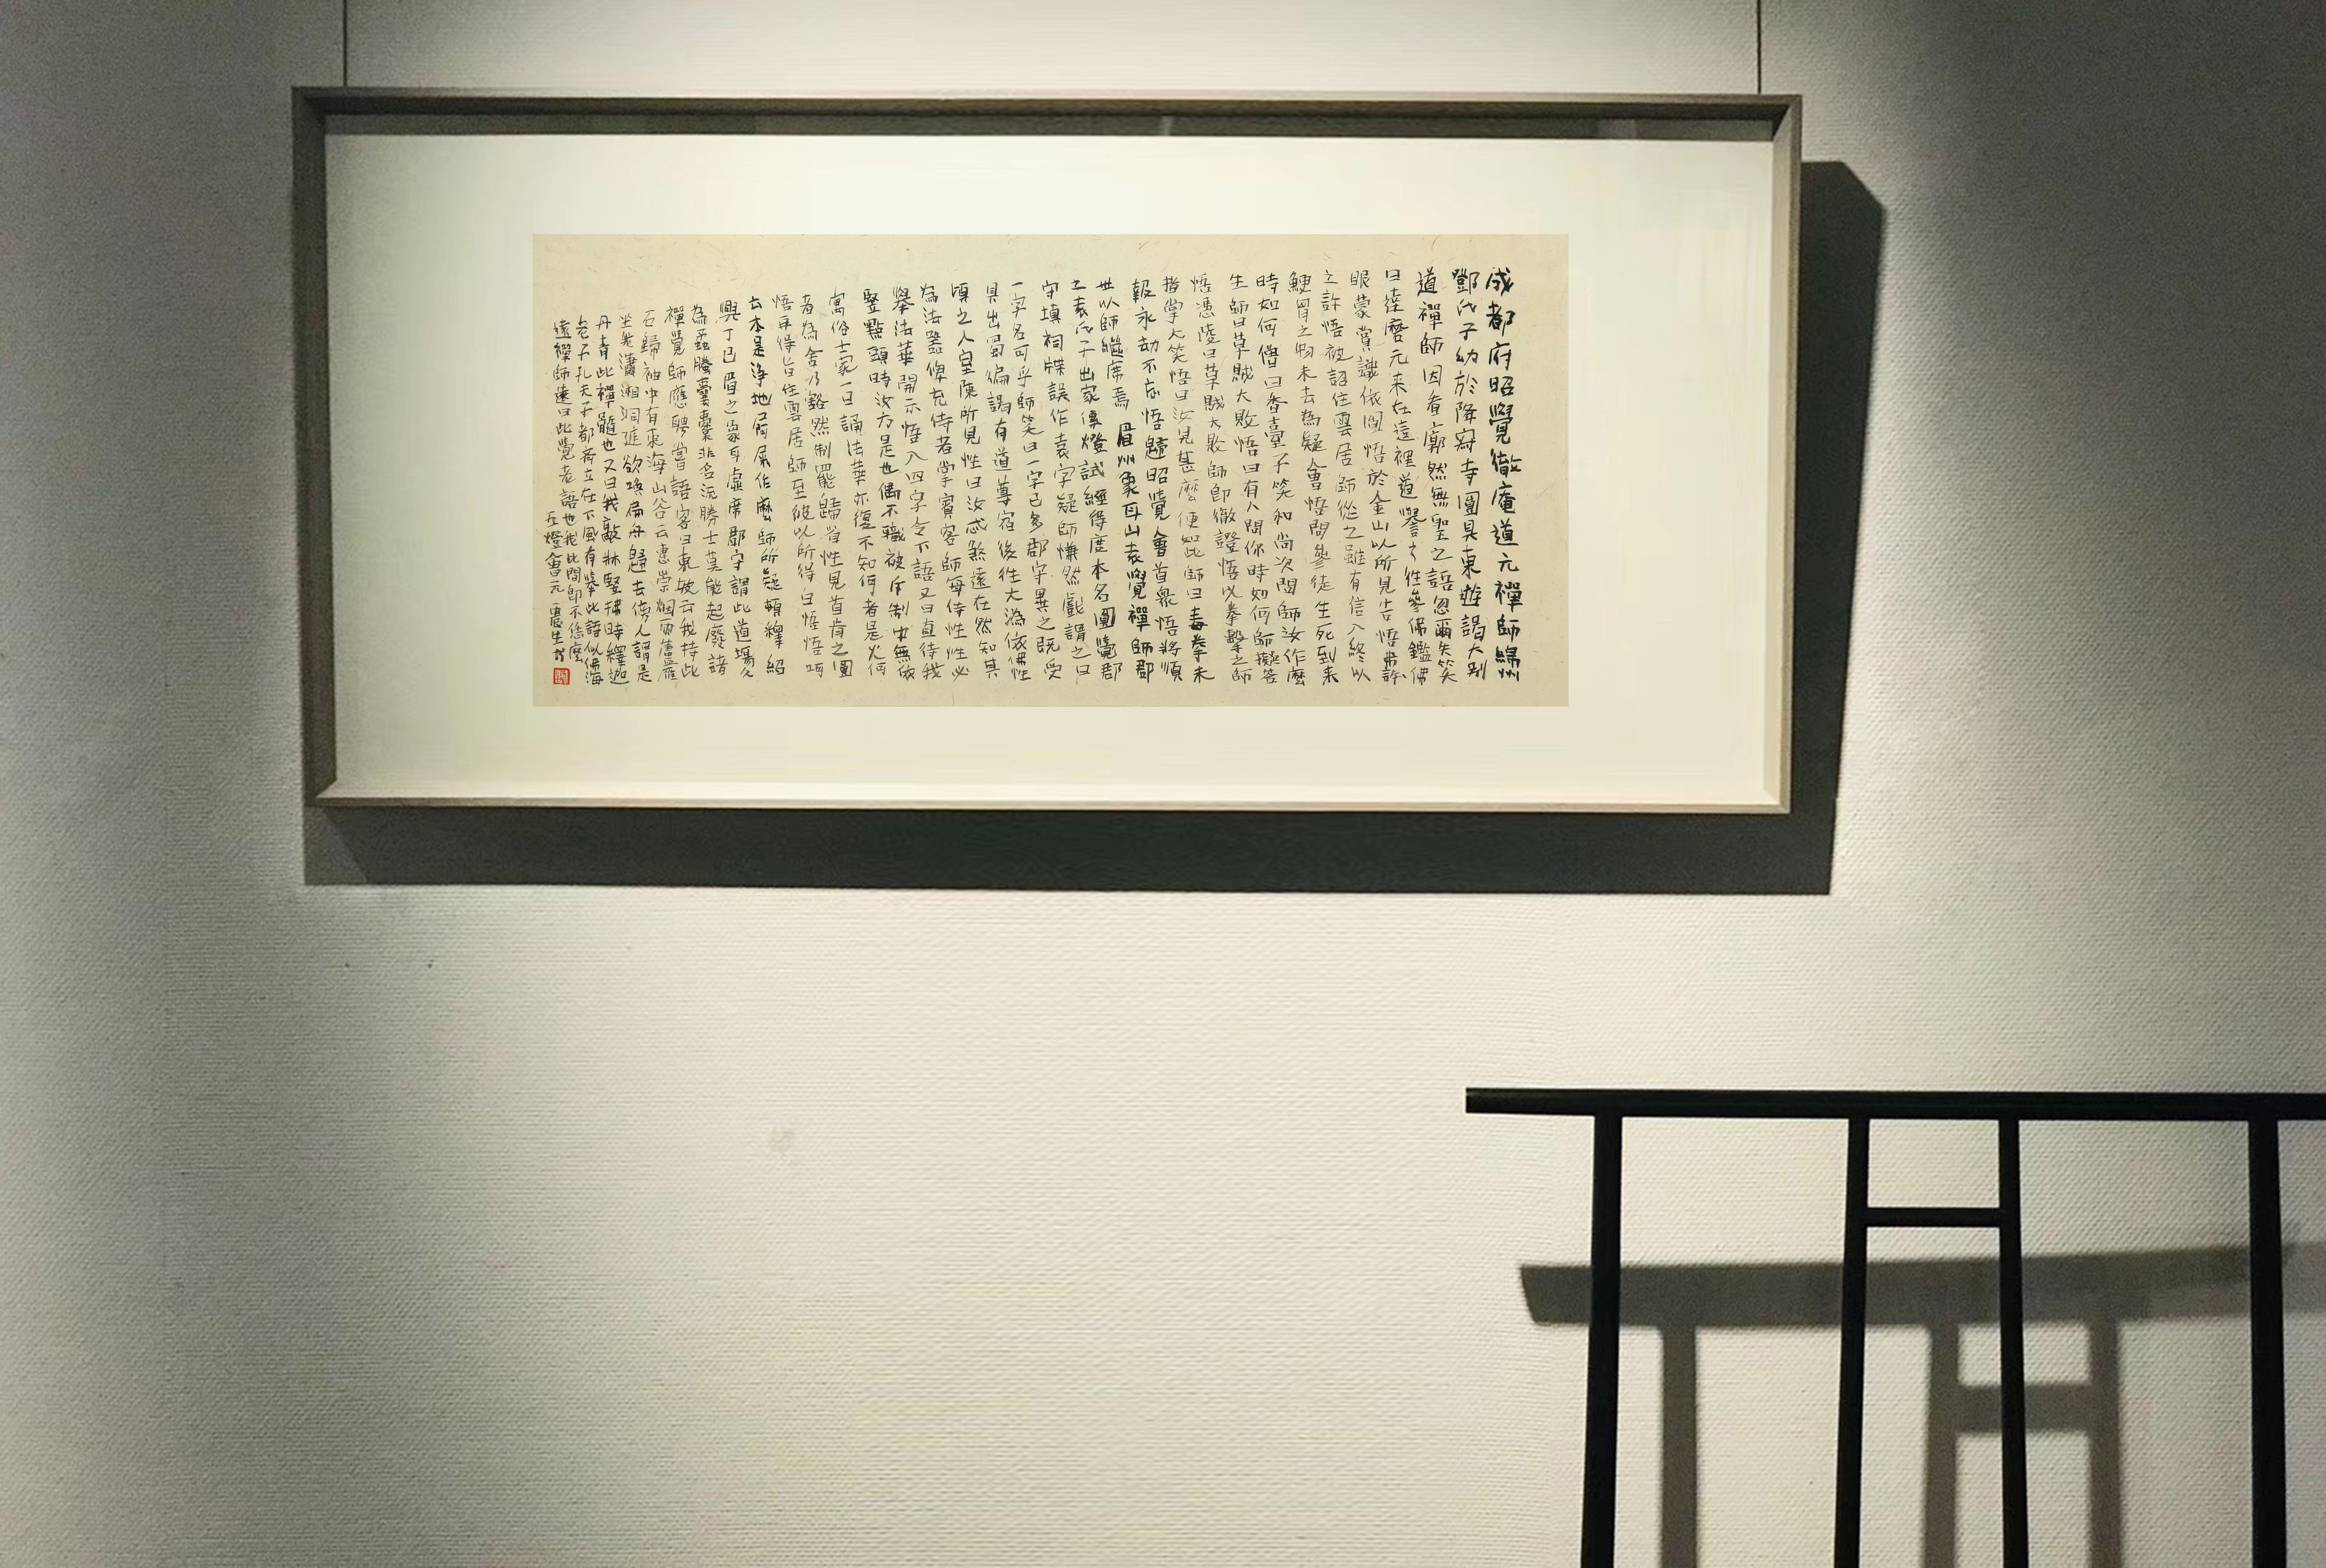 成都府昭覺徹庵道元禪師綿州
鄧氏子幼於降寂寺圓具東遊謁大別
道禪師因看廓然無聖之語忽爾失笑
曰達磨元来在這裡道譽之往參佛鑑佛
眼蒙賞識依圜悟於金山以所見告悟弗許
悟被詔住雲居師從之雖有信入終以
鯁胷之物未去為疑會悟問參徒生死到来
時如何僧曰香臺子笑和尚次問師汝作麼
生師曰草賊大敗悟曰有人問你時如何師擬答
悟憑陵曰草賊大敗師即徹證悟以拳擊之師
指掌大笑悟曰汝見甚麼便如此師曰毒拳未
報永劫不忘悟歸昭覺命首衆悟將順
世以師繼席焉 眉州象耳山袁覺禪師郡
之袁氏子出家傳燈試經得度本名圓覺郡
守填祠牒誤作袁字疑師慊然戲謂之曰
一字名可乎師笑曰一字已多郡守異之既受
具出蜀徧謁有道尊宿後往大溈依佛性
頃之入室陳所見性曰汝忒煞遠在然知其
為法器俾充侍者掌賓客師每侍性性必
舉法華開示悟入四字令下語又曰直待我
豎點頭時汝方是也偶不職被斥制中無依
寓俗士家一日誦法華亦復不知何者是火何
者為舍乃豁然制罷歸省性見首肯之圜
悟再得旨住雲居師至彼以所得白悟悟呵
云本是淨地屙屎作麼師所疑頓釋 紹
興丁巳眉之象耳虛席郡守謂此道場久
為蟊螣囊橐非名流勝士莫能起廢諸
禪覺師應聘嘗語客曰東坡云我持此
石歸袖中有東海山谷云惠崇烟雨蘆雁
坐我瀟湘洞庭欲喚扁舟歸去傍人謂是
丹青此禪髓也又曰我敲牀豎拂時釋迦
老子孔夫子都齊立在下風有舉此語似佛海
遠禪師遠曰此覺老語也我此間即不恁麼
五燈會元